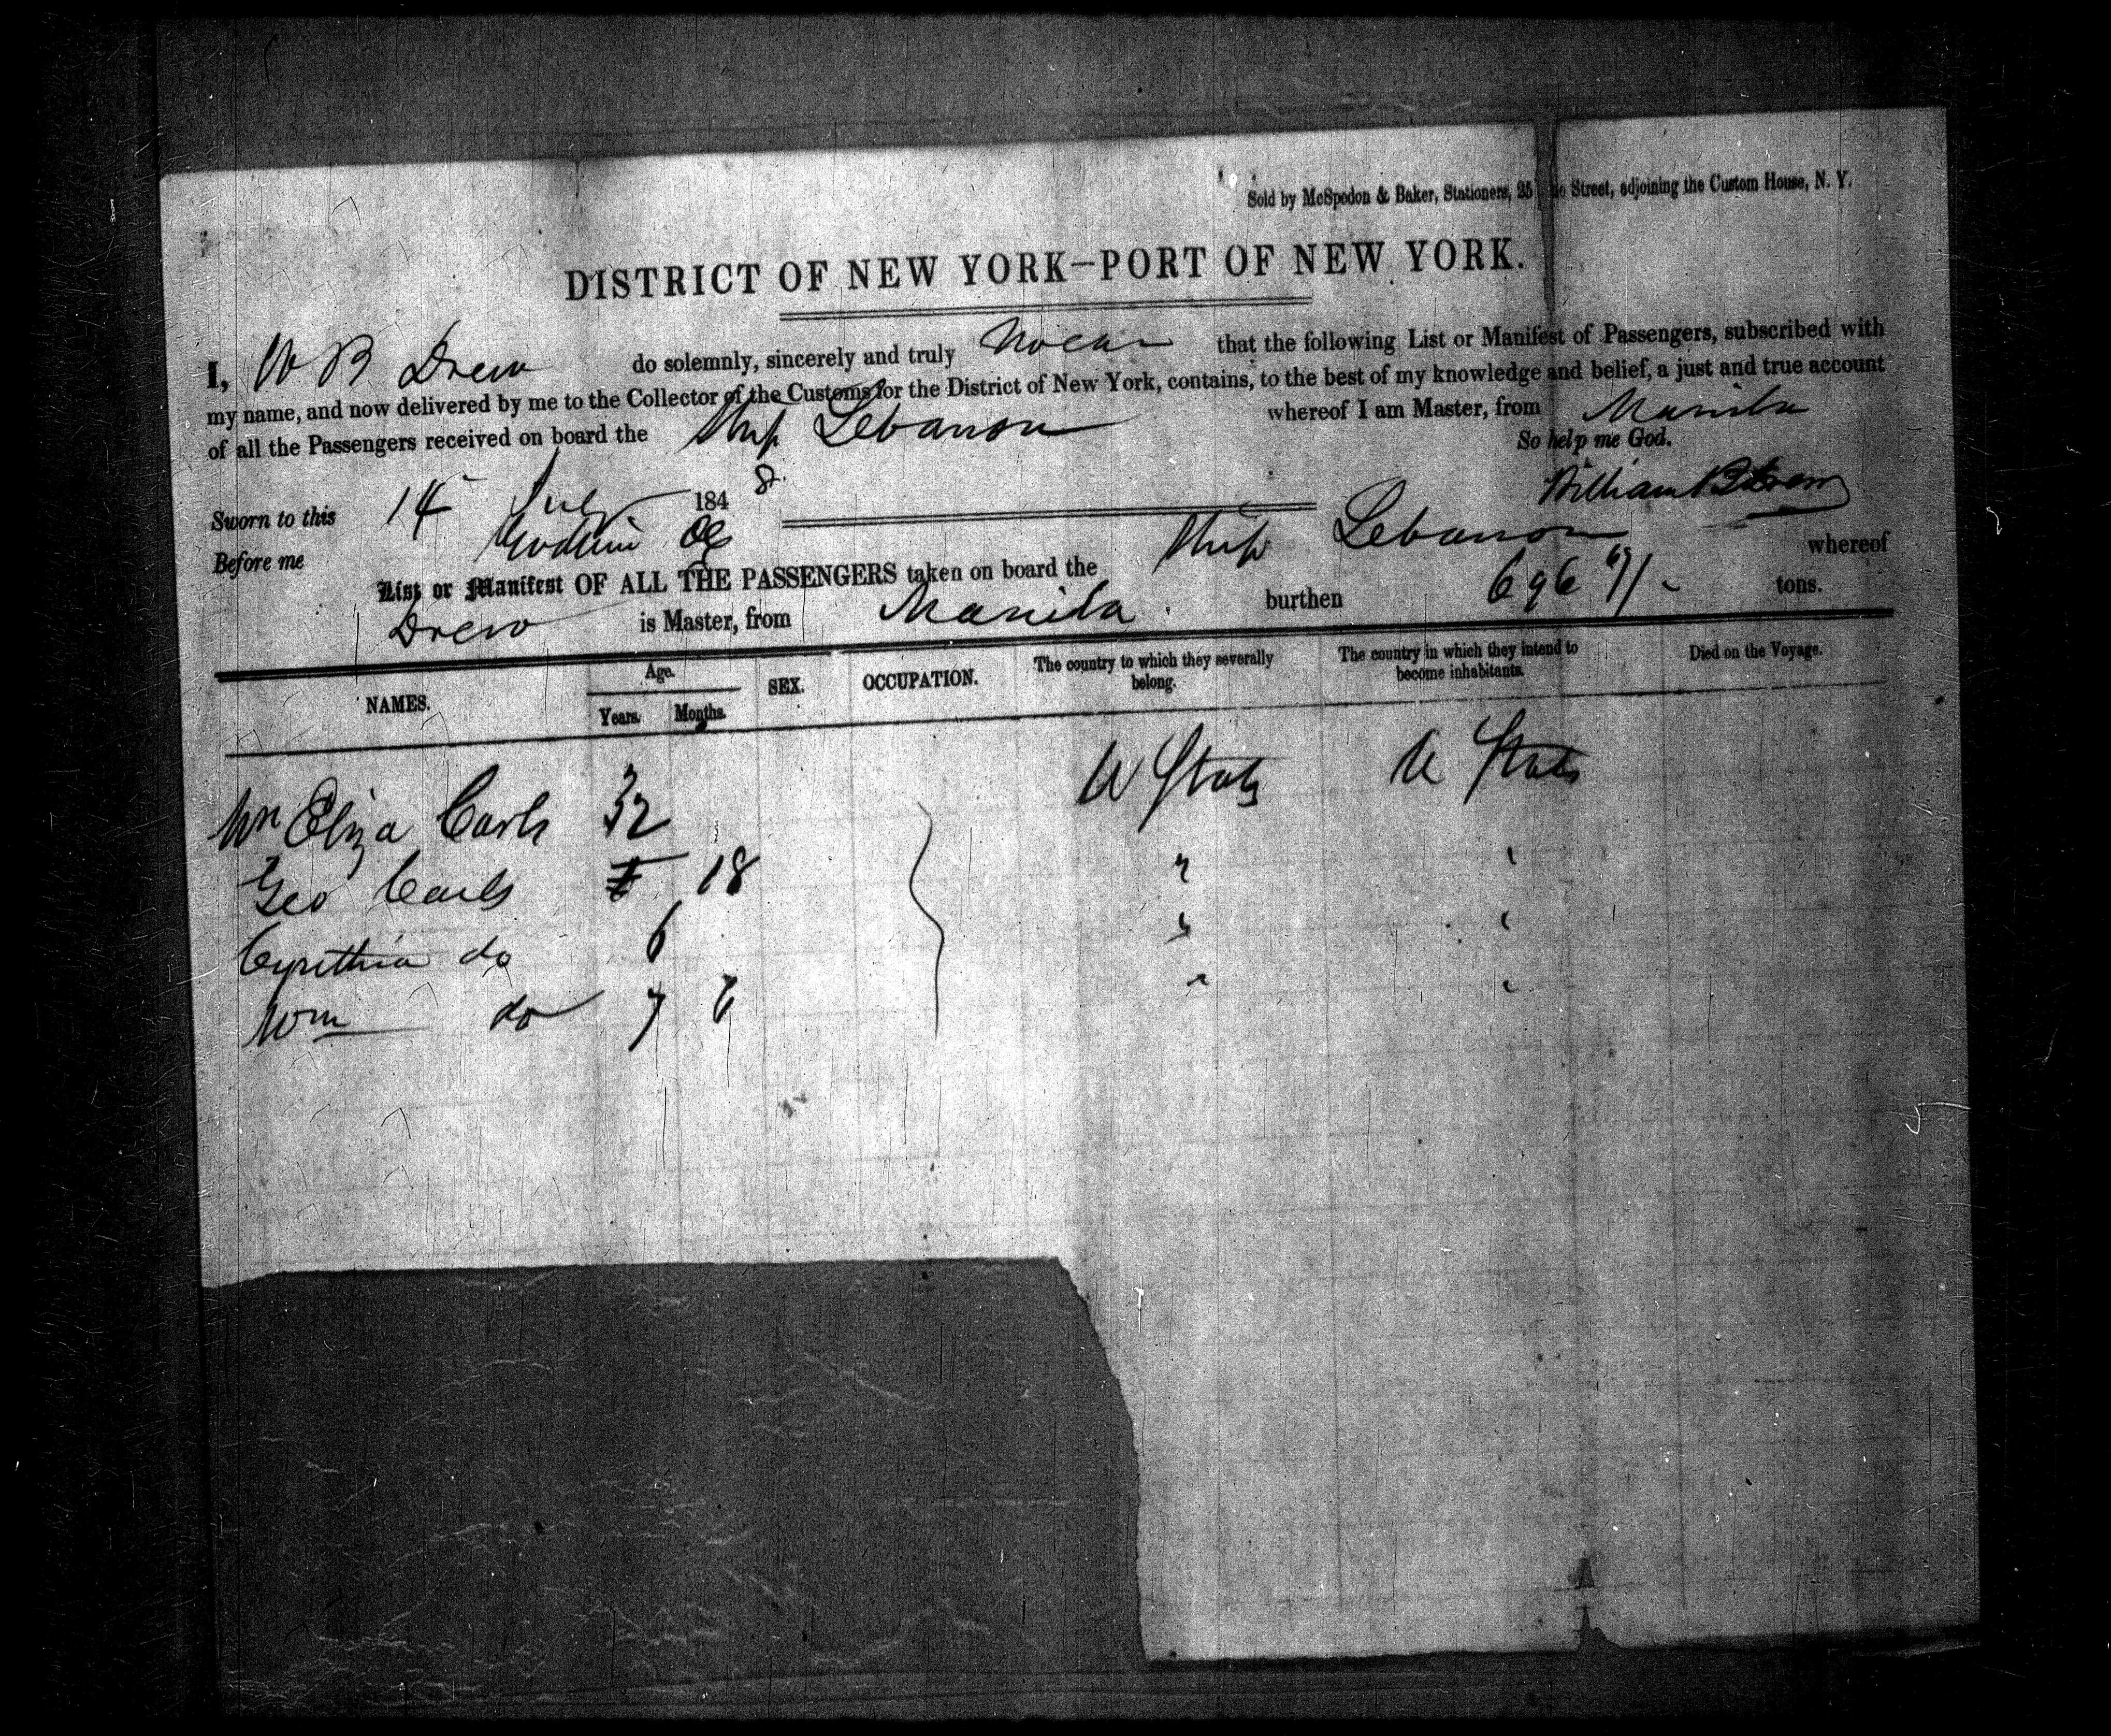 Sold by McSpedon & Baker, Stationers, 25 Street, adjoining the Custom House, N. Y.
DISTRICT OF NEW YORK—PORT OF NEW YORK.
I, W B Drew do solemnly, sincerely and truly swear that the following List or Manifest of Passengers, subscribed with
my name, and now delivered by me to the Collector of the Customs for the District of New York, contains, to the best of my knowledge and belief, a just and true account
of all the Passengers received on board the Ship Lebanon whereof I am Master, from Manila
So help me God.
Sworn to this 14 July 1848. William B Drew
Before me
List or Manifest OF ALL THE PASSENGERS taken on board the Ship Lebanon whereof
Drew is Master, from Manila burthen 696 tons.
NAMES. Age. Years. Months. SEX. OCCUPATION. The country to which they severally belong. The country in which they intend to become inhabitants. Died on the Voyage.
Eliza Carls 32 U States U States
Geo Carls 18 " "
Cynthia do 6 " "
Wm do 7 6 " "